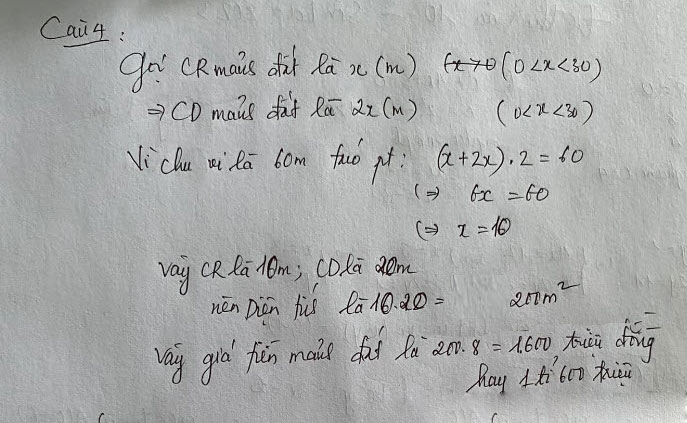 Câu 4:
Gọi CR mảnh đất là x (m) x>0 (0<x<30)
=> CD mảnh đất là 2x (m) (0<x<30)
Vì chu vi là 60m ta có pt: (x+2x).2=60
(=> 6x=60
(=> x=10
Vậy CR là 10m; CD là 20m
nên Diện tích là 10.20= 200m²
Vậy giá tiền mảnh đất là 200.8=1600 triệu đồng
hay 1 tỉ 600 triệu